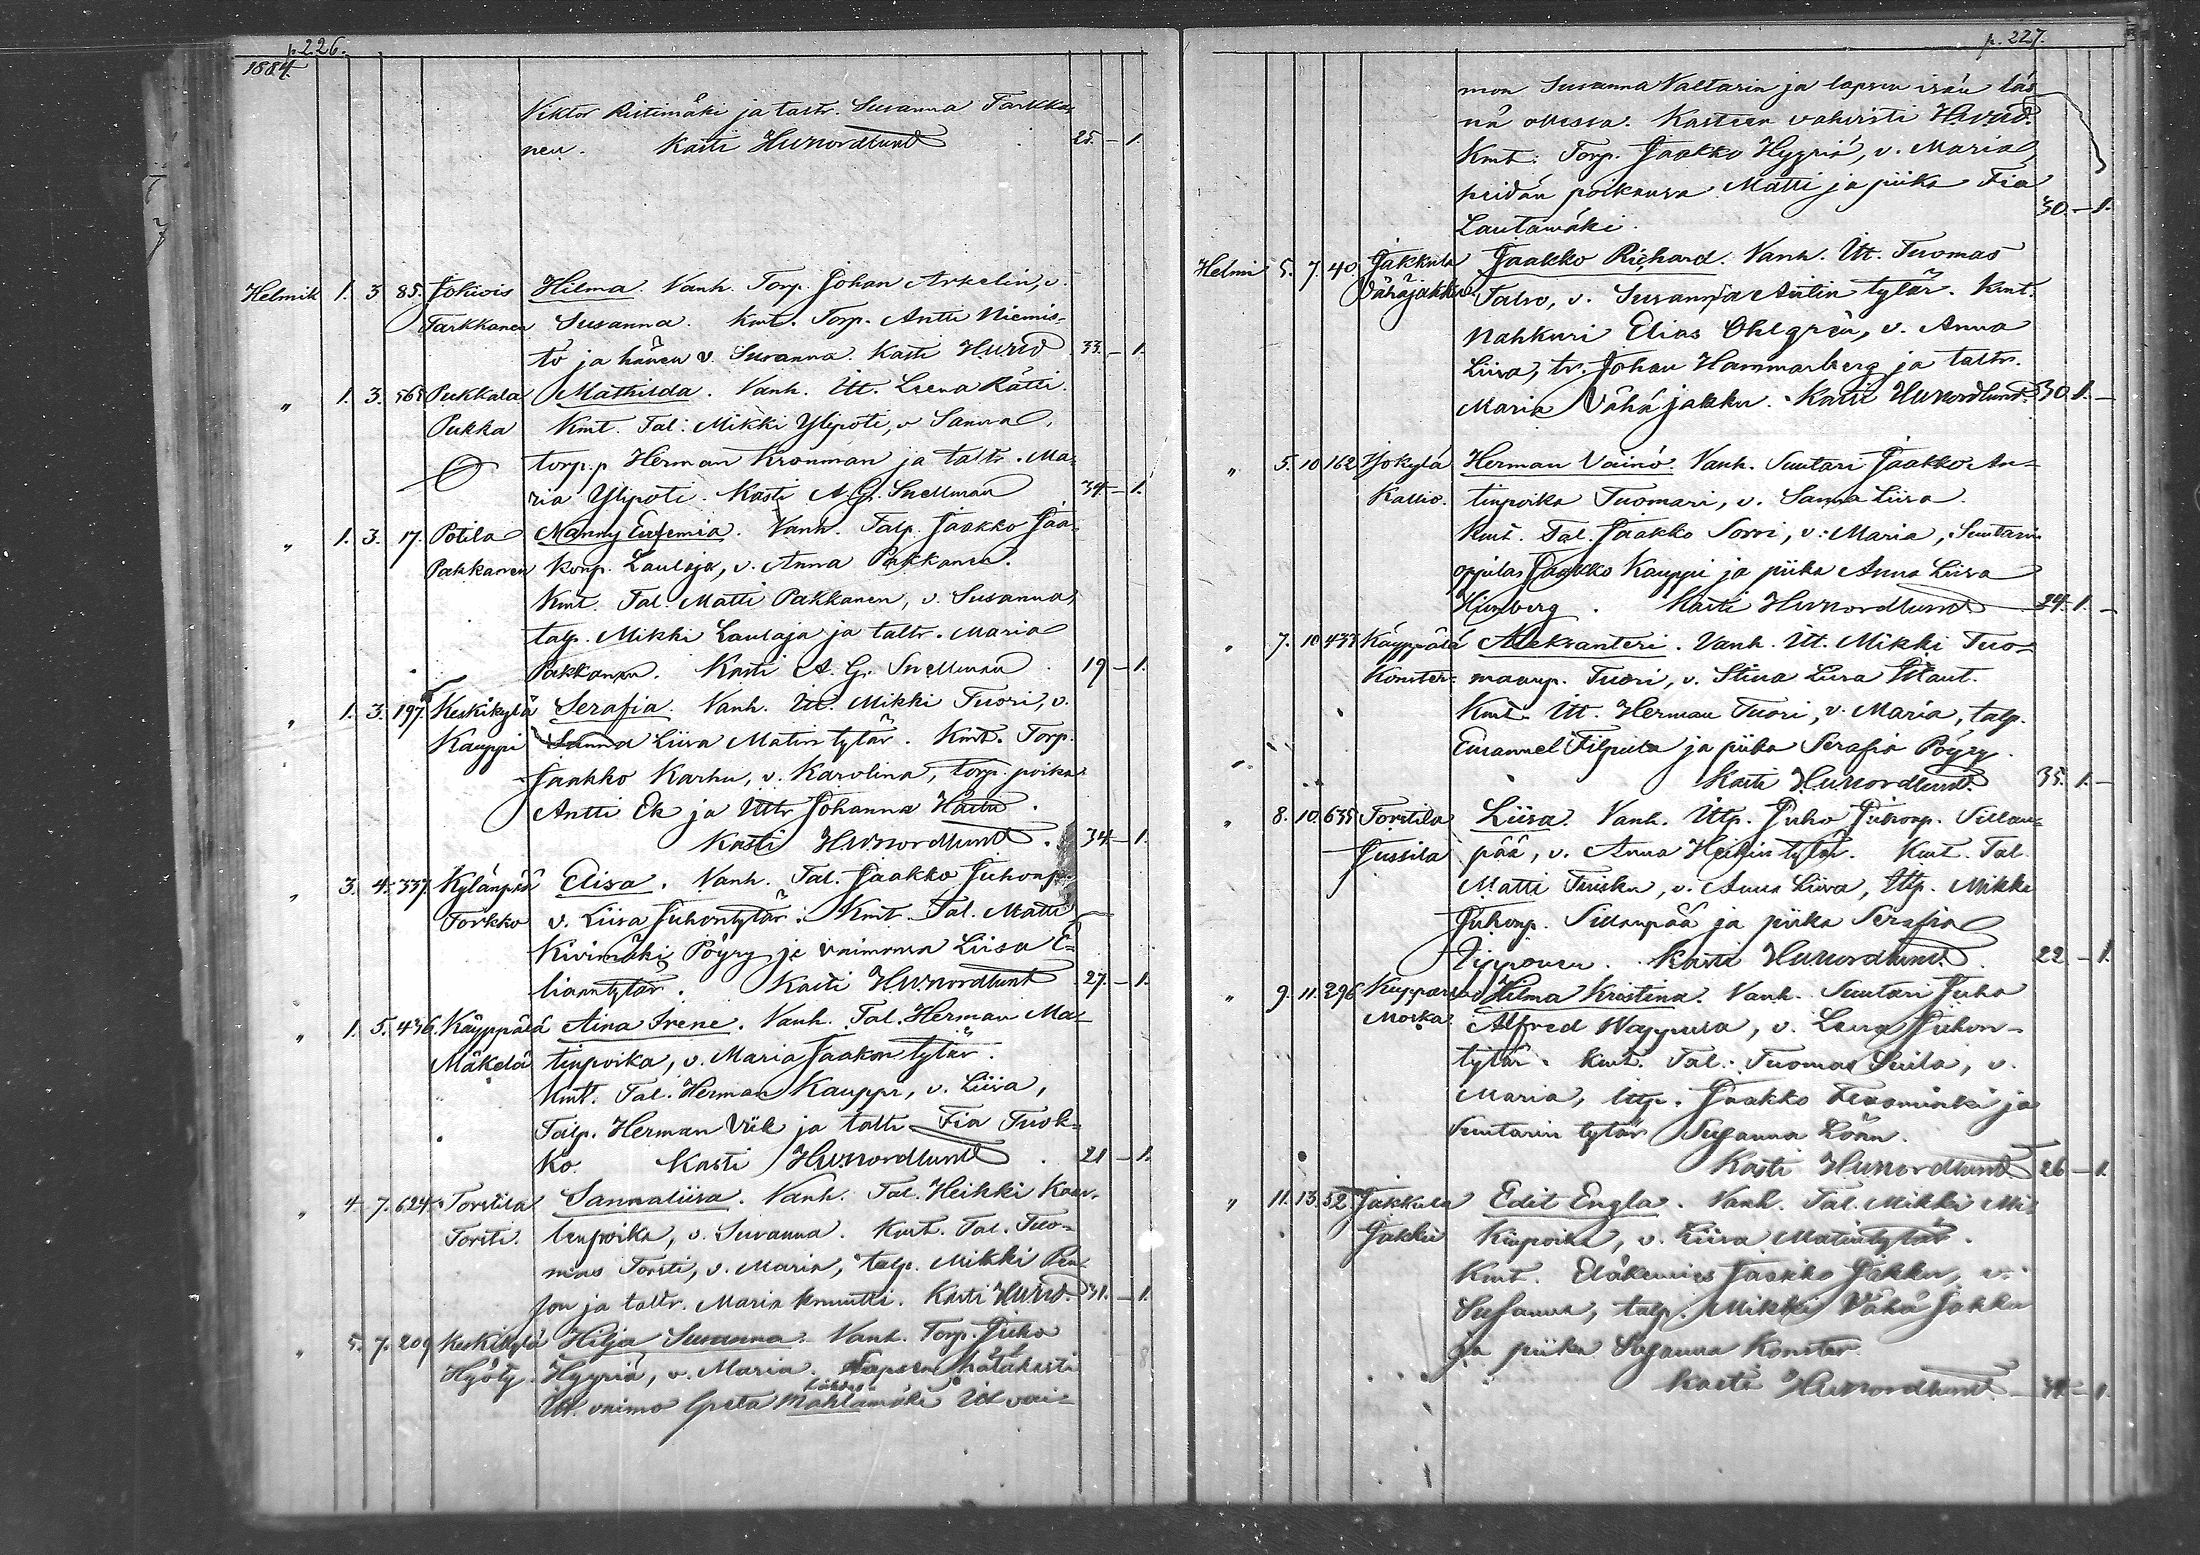 p. 226.
1884.
Viktor Ristimäki ja taltr. Susanna Tarkka-
nen. Kasti HWNordlund 25. — 1.
Helmik 1. 3 85. Jokivis Hilma. Vanh. Torp. Johan Arkelin, v.
Tarkkanen Susanna. Kmt. Torp. Antti Niemis-
tö ja hänen v. Susanna. Kasti HWNd 33. — 1.
" 1. 3. 565 Pukkala Mathilda. Vanh. Itt. Leena Rätti.
Pukka Kmt. Tal. Mikki Ylipoti, v Sanna,
torp.p Herman Kronman ja taltr. Ma-
ria Ylipoti. Kasti A. G. Snellman 34 — 1.
" 1. 3. 17. Potila Nanny Eufemia. Vanh. Talp. Jaakko Jaa-
Pakkanen konp. Laulaja, v. Anna Pakkanen.
Kmt. Tal. Matti Pakkanen, v. Susanna,
talp. Mikki Laulaja ja taltr. Maria
Pakkanen. Kasti A. G. Snellman 19 — 1.
" 1. 3. 197. Keskikylä Serafia. Vanh. Itt. Mikki Tuori, v.
Kauppi Sanna Liisa Matintytär. Kmt. Torp.
Jaakko Karhu, v. Karolina, torp. poika
Antti Ek ja Ittr Johanna
Kasti HWNordlund. 34 — 1.
" 3. 4. 337. Kylänpää Elisa. Vanh. Tal. Jaakko Juhonp.
Torkko v. Liisa Juhontytär. Kmt. Tal. Matti
Kivimäki Pöyry ja vaimonsa Liisa E-
liaantytär. Kasti HWNordlund 27. — 1.
" 1. 5. 436. Käyppälä Aina Irene. Vanh. Tal. Herman Ma-
Mäkelä tinpoika, v. Maria Jaakontytär.
Kmt. Tal. Herman Kauppi, v. Liisa,
Talp. Herman Viik ja taltr Fia Tuok-
ko. Kasti HWNordlund. 21 — 1.
" 4. 7. 624. Torstila Sannaliisa. Vanh. Tal. Heikki Kaar-
Torsti. lenpoika, v. Susanna. Kmt. Tal. Tuo-
mas Torsti, v. Maria, talp. Mikki Pen-
jon ja taltr. Maria Knuutti. Kasti HWNd. 31. — 1.
" 5. 7. 209 Keskikylä Hilja Susanna. Vanh. Torp. Juho
Hyöty. Hyyriä, v. Maria. Lapsen hätäkasti
Itt. vaimo Greta Mahlamäki Itt vai-
p. 227.
mon Susanna Valtarin ja lapsen isän läs-
nä ollessa. Kasteen vahvisti HWNd.
Kmt. Torp. Jaakko Hyyriä, v. Maria,
heidän poikansa Matti ja piika Fia
Lautamäki. 30. — 1.
Helmi 5. 7. 40. Jakkula Jaakko Richard. Vanh. Itt. Tuomas
Vähäjakku Talso, v. Susanna Antin tytär. Kmt.
Nahkuri Elias Ohlgrén, v. Anna
Liisa, tr. Johan Hammarberg ja taltr.
Maria Vähäjakku. Kasti HWNordlund. 30. 1. —
" 5. 10 162 Herman Väinö. Vanh. Suutari Jaakko An-
Kallio. tinpoika Tuomari, v. Sanna Liisa.
Kmt. Tal. Jaakko Sorri, v. Maria, Suutarin
oppilas Jaakko Kauppi ja piika Anna Liisa
Kasti HWNordlund 24. 1. —
" 7. 10 433 Käyppälä Aleksanteri. Vanh. Itt. Mikki Tuo-
Konster. maanp. Tuori, v. Stina Liisa
Kmt. Itt. Herman Tuori, v. Maria, talp.
Emanuel Filpula ja piika Serafia Pöyry.
Kasti HWNordlund. 35. 1. —
" 8. 10. 635 Torstila Liisa. Vanh. Itp. Juho Juhonp. Sillan-
Jussila pää, v. Anna Heikintytär. Kmt. Tal
Matti Tuisku, v. Anna Liisa, Itp. Mikki
Juhonp. Sillanpää ja piika Serafia
Kasti HWNordlund. 22 — 1.
" 9. 11. 296 Hilma Kristina. Vanh. Suutari Juho
Moska Alfred v. Leena Juhon-
tytär. Kmt. Tal. Tuomas v.
Maria, Itp. Jaakko ja
Suutarin tytär Susanna Löön.
Kasti HWNordlund 26 — 1.
" 11. 13. 52 Jakkula Edit Engla. Vanh. Tal. Mikki Mi-
Jakku kinpoika, v. Liisa Matintytär.
Kmt. Eläkemies Jaakko Jakku, v.
Susanna, talp. Mikki Vähä Jakku
ja piika Susanna Konster.
Kasti HWNordlund — 34 — 1.